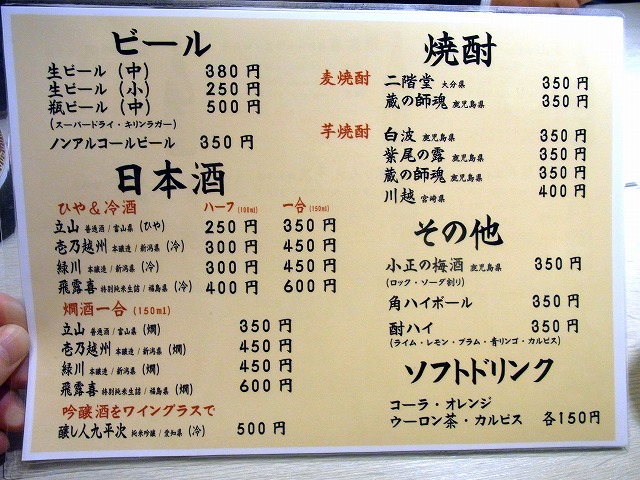 ビール
生ビール（中） 380円
生ビール（小） 250円
瓶ビール（中） 500円
（スーパードライ・キリンラガー）
ノンアルコールビール 350円
日本酒
ひや＆冷酒 ハーフ(100ml) 一合(150ml)
立山 普通酒/富山県（ひや） 250円 350円
壱乃越州 本醸造/新潟県（冷） 300円 450円
緑川 本醸造/新潟県（冷） 300円 450円
飛露喜 特別純米生詰/福島県（冷） 400円 600円
燗酒一合（150ml）
立山 普通酒/富山県（燗） 350円
壱乃越州 本醸造/新潟県（燗） 450円
緑川 本醸造/新潟県（燗） 450円
飛露喜 特別純米生詰/福島県（燗） 600円
吟醸酒をワイングラスで
醸し人九平次 純米吟醸/愛知県（冷） 500円
焼酎
麦焼酎 二階堂 大分県 350円
蔵の師魂 鹿児島県 350円
芋焼酎 白波 鹿児島県 350円
紫尾の露 鹿児島県 350円
蔵の師魂 鹿児島県 350円
川越 宮崎県 400円
その他
小正の梅酒 鹿児島県 350円
（ロック・ソーダ割り）
角ハイボール 350円
酎ハイ 350円
（ライム・レモン・プラム・青リンゴ・カルピス）
ソフトドリンク
コーラ・オレンジ
ウーロン茶・カルピス 各150円